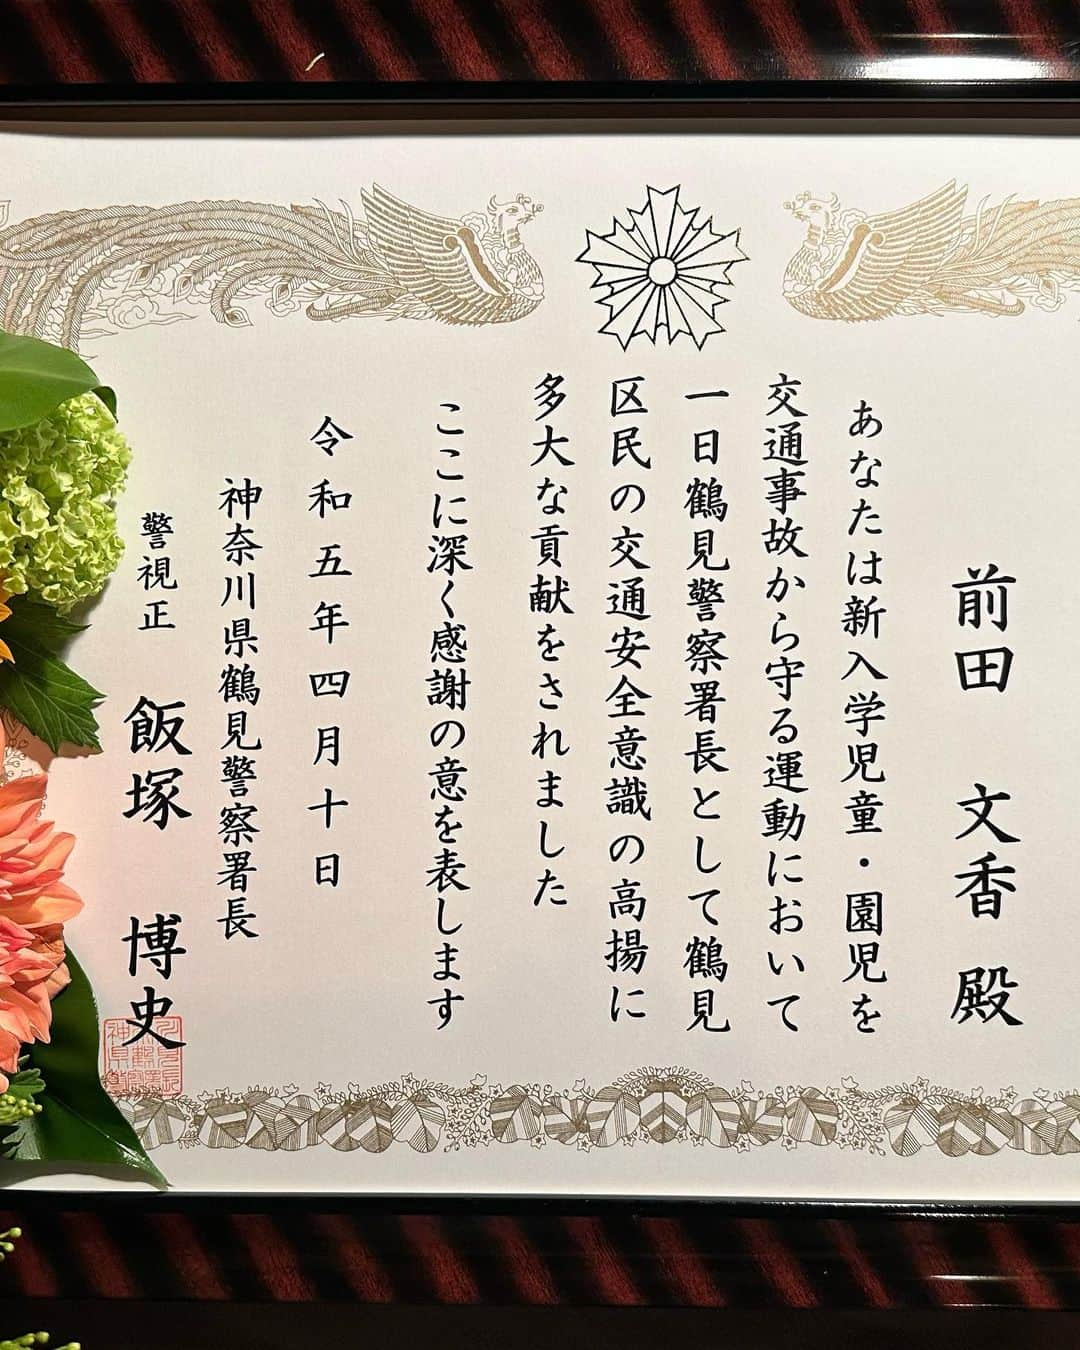 前田 文香 殿
あなたは新入学児童・園児を
交通事故から守る運動において
一日鶴見警察署長として鶴見
区民の交通安全意識の高揚に
多大な貢献をされました
ここに深く感謝の意を表します
令和五年四月十日
神奈川県鶴見警察署長
警視正 飯塚 博史